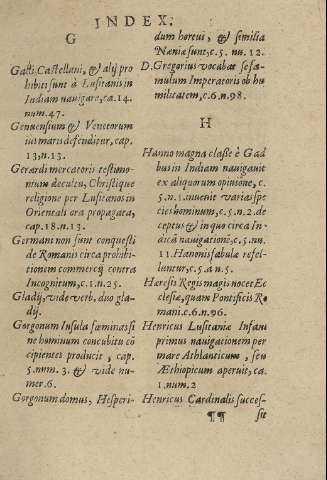 INDEX.
G
Galli, Castellani, & alij pro
hibiti sunt à Lusitanis in
Indiam nauigare, ca. 14.
num. 47.
Genuensium & Venetorum
ius maris defenditur, cap.
13, n. 13.
Gerardi mercatoris testimo-
nium de cultu, Christique
religione per Lusitanos in
Orientali ora propagata,
cap. 18. n. 13.
Germani non sunt conquesti
de Romanis circa prohibi-
tionem commercij contra
Incognitum, c. 1. n. 25.
Gladij, vide verb. duo gla
dij.
Gorgonum Insula fœminas si
ne hominum concubitu co
cipientes producit, cap.
5. num. 3. & vide nu-
mer. 6.
Gorgonum domus, Hesperi-
dum horeui, & similia
Næniæ sunt, c. 5. nu. 12.
D. Gregorius vocabat se fa-
mulum Imperatoris ob hu
militatem, c. 6. n. 98.
H
Hanno magna classe è Gad
bus in Indiam nauigauit
ex aliquorum opinione, c.
5. n. 1. inuenit varias spe
cies hominum, c. 5. n. 2. de
ceptus & in quo circa In-
dicã nauigationē, c. 5. nu.
11. Hannis fabula refel-
luntur, c. 5. a n. 5.
Hæresis Regis magis nocet Ec
clesiæ, quam Pontificis Ro
mani. c. 6. n. 96.
Henricus Lusitaniæ Infans
primus nauigationem per
mare Athlanticum, seu
Æthiopicum aperuit, ca.
1. num. 2
Henricus Cardinalis success-
¶¶ sit